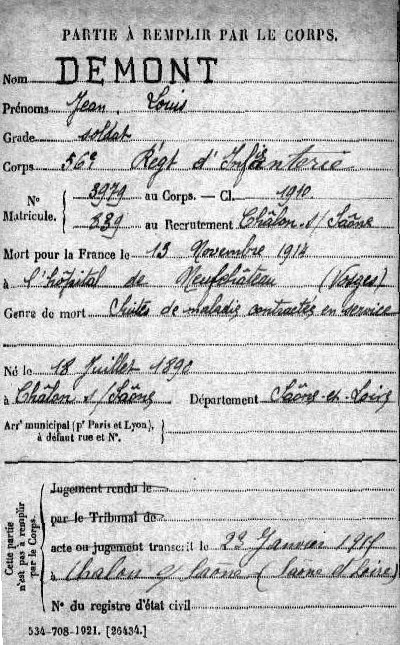 PARTIE À REMPLIR PAR LE CORPS.
Nom DEMONT
Prénoms Jean, Louis
Grade soldat
Corps 56e Régt d'Infanterie
Nº Matricule. { 3979 au Corps. — Cl. 1910
339 au Recrutement Châlon s/ Saône
Mort pour la France le 13 Novembre 1914
à l'hôpital de Neufchâteau (Vosges)
Genre de mort Suites de maladie contractée en service
Né le 18 Juillet 1890
à Châlon s/ Saône Département Saône-et-Loire
Arrt municipal (pr Paris et Lyon), à défaut rue et Nº. }
Cette partie n'est pas à remplir par le Corps.
Jugement rendu le
par le Tribunal de
acte ou jugement transcrit le Janvier
à Chalon s/ Saone (Saone et Loire)
Nº du registre d'état civil
534-708-1921. [26434.]